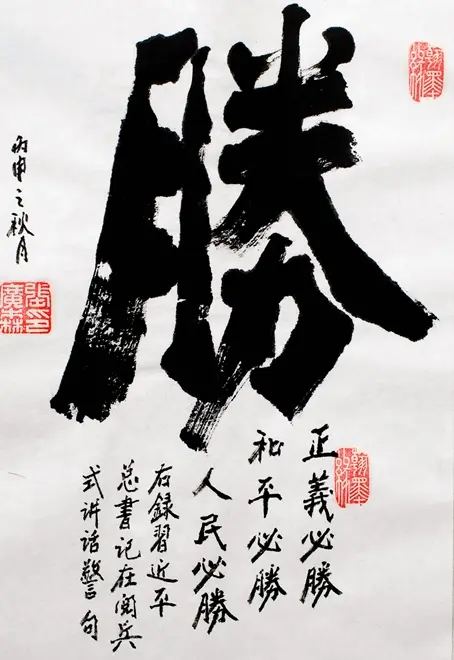 勝
正義必勝
和平必勝
人民必勝
右録習近平
总書记在阅兵
式讲话警句
丙申之秋月